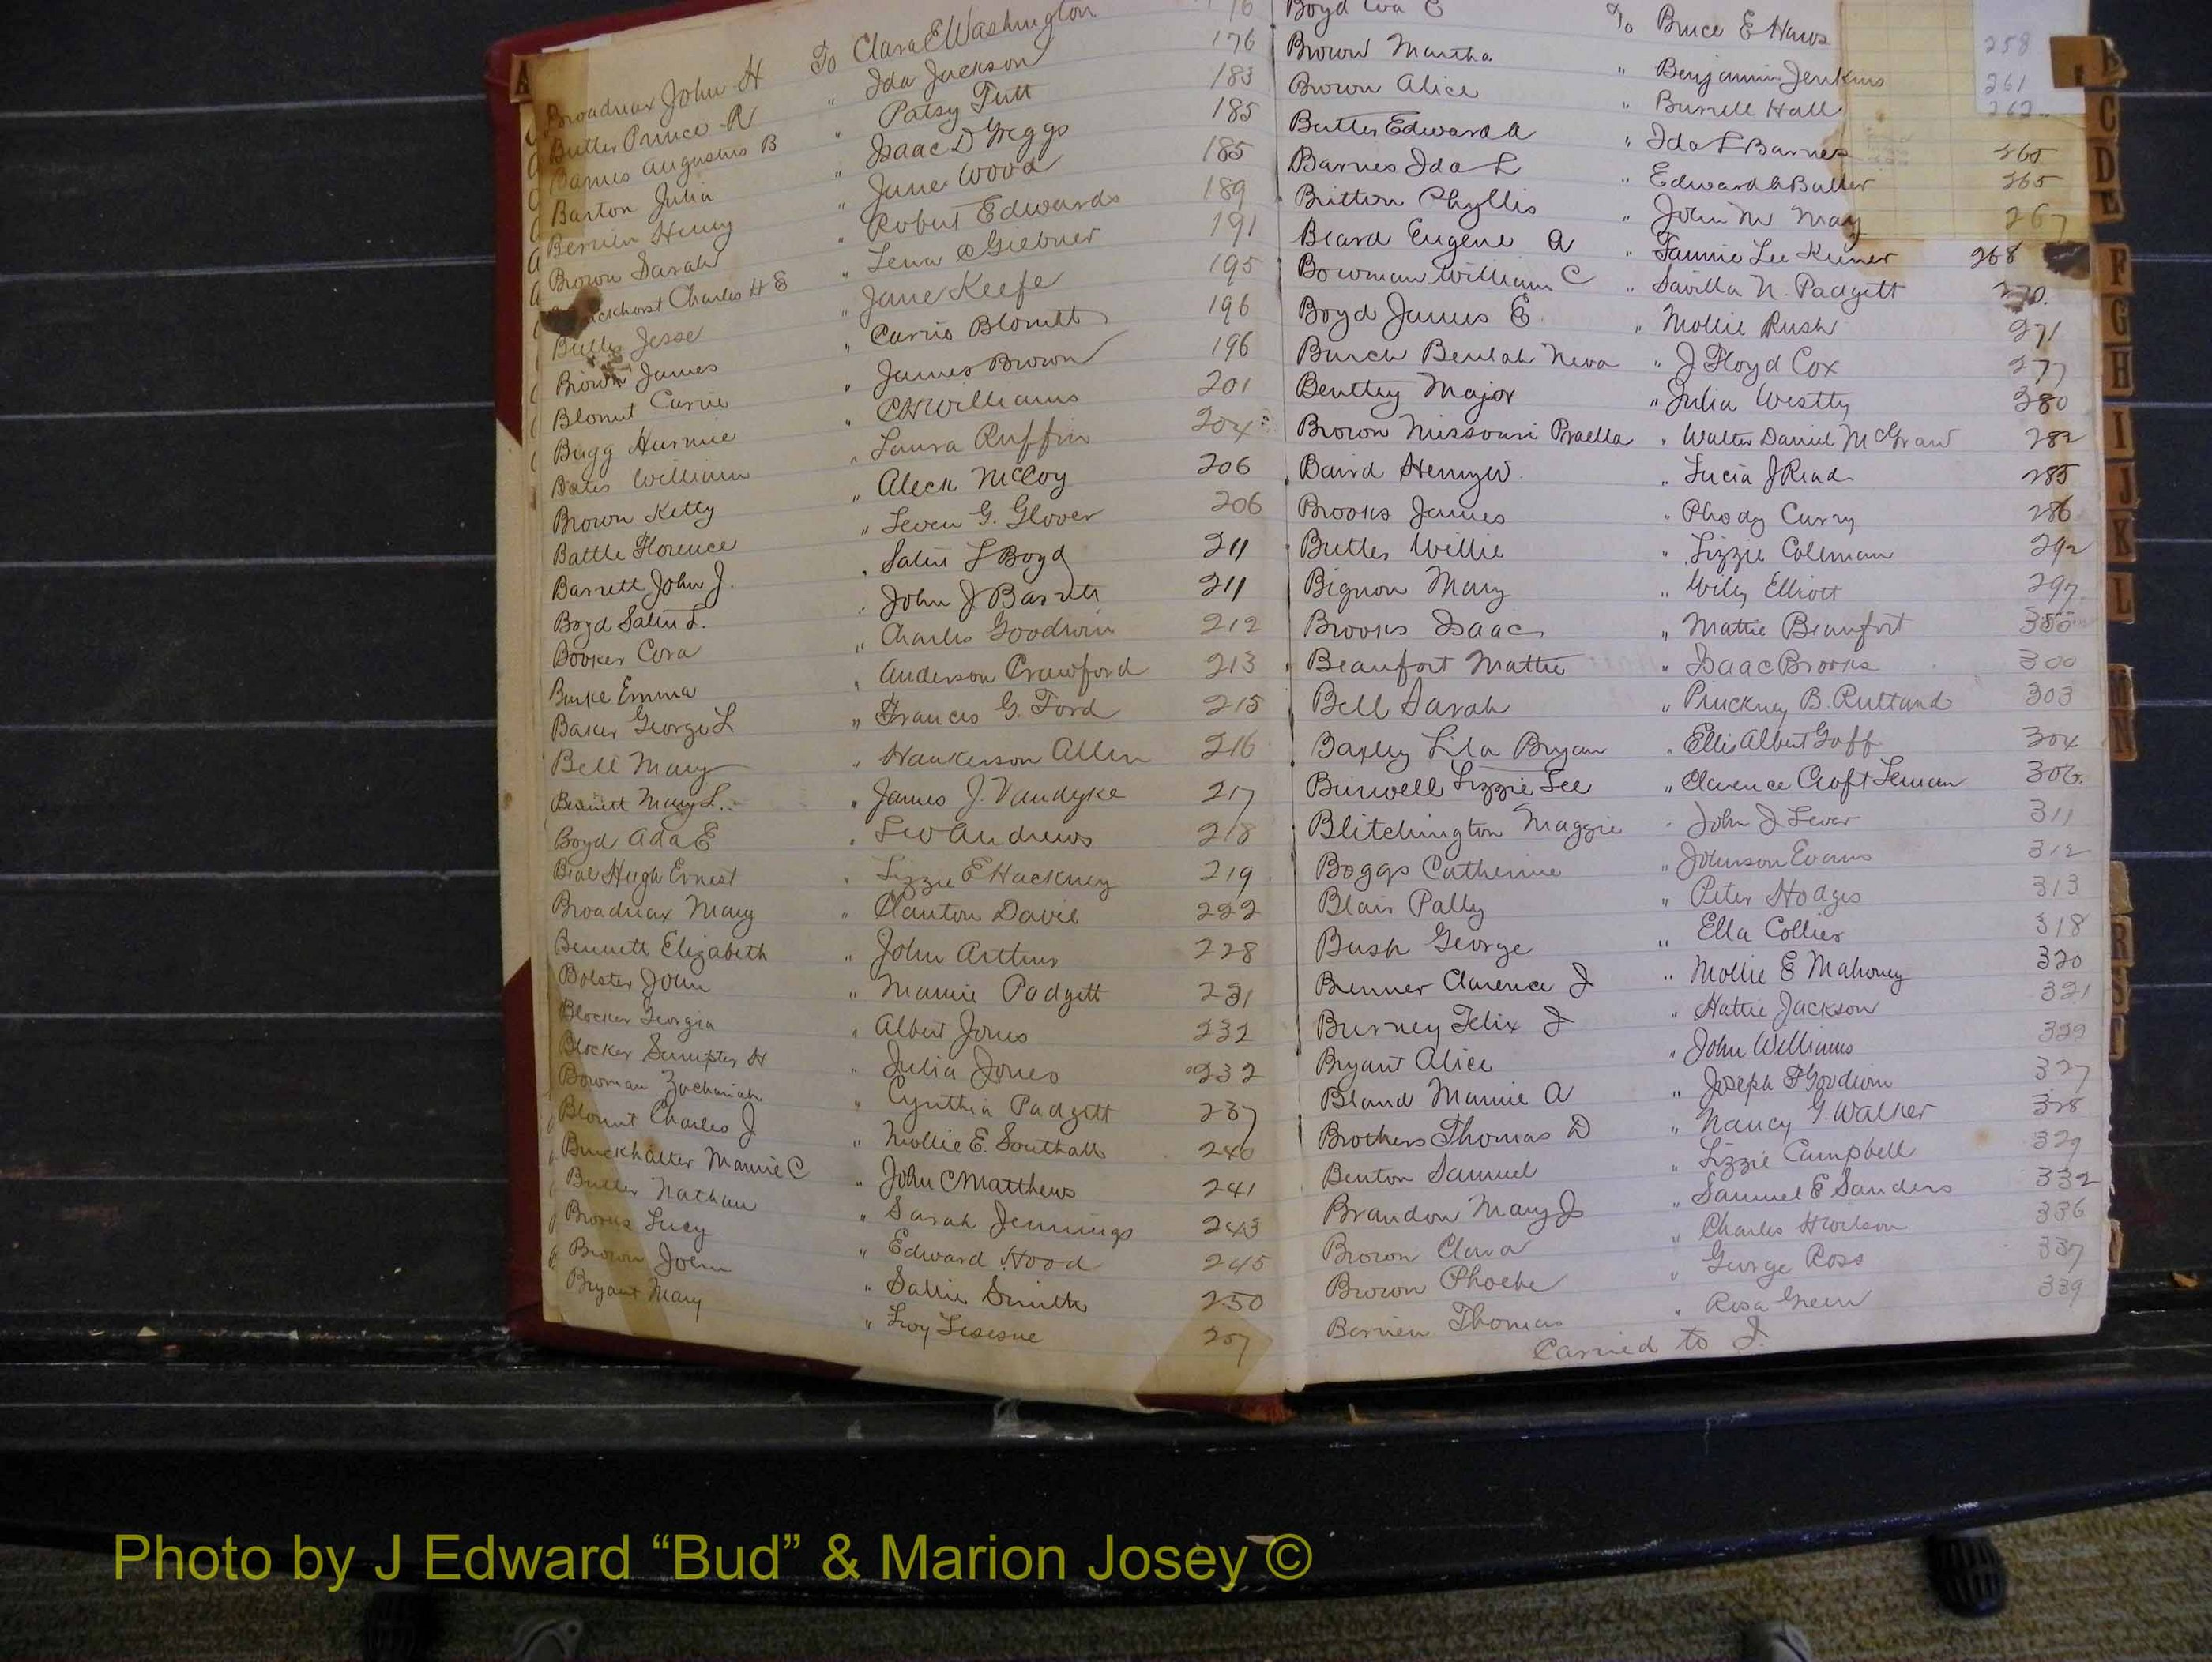 Broadnax John H To Clara E Washington 176
Butler Prince R " Ida Jackson 176
Barnes Augustus B " Patsy Tutt 183
Barton Julia " Isaac D Greggs 185
Berrien Henry " June Wood 185
Brown Sarah " Robert Edwards 189
Charles H E " Lena Giebner 191
Butler Jesse " Jane Keefe 195
Brown James " Carrie Blount 196
Blount Carrie " James Brown 196
Bugg " C H Williams 201
Bates William " Laura Ruffin 204
Brown Kitty " Aleck McCoy 206
Battle Florence " Leven G. Glover 206
Barrett John J. " L Boyd 211
Boyd L. " John J Barrett 211
Booker Cora " Charles Goodwin 212
Burke Emma " Anderson Crawford 213
Baker George L " Frances G. Ford 215
Bell Mary " Hankerson Allen 216
Bennett Mary L. " James J. Vandyke 217
Boyd Ada E " Leo Andrews 218
Beal Hugh Ernest " Lizzie E Hackney 219
Broadnax Mary " Clanton Davis 222
Bennett Elizabeth " John Arthur 228
Bolster John " Mamie Padgett 231
Blocker Georgia " Albert Jones 232
Blocker Sumpter H " Julia Jones 232
Bowman Zachariah " Cynthia Padgett 237
Blount Charles J " Mollie E. Southall 240
Burckhalter Mamie C " John C Matthews 241
Butler Nathan " Sarah Jennings 243
Brooks Lucy " Edward Hood 245
Brown John " Sallie Smith 250
Bryant Mary " Leroy 257
Boyd Eva E To Bruce E Haws 258
Brown Martha " Benjamin Jenkins 261
Brown Alice " Burrell Hall 262
Butler Edward A " Ida L Barnes 265
Barnes Ida L " Edward A Butler 265
Britton Phyllis " John M May 267
Beard Eugene A " Fannie Lee Keener 268
Bowman William C " Savilla N. Padgett 270.
Boyd James E. " Mollie Rush 271
Burch Beulah Neva " J Floyd Cox 277
Bentley Major " Julia Westly 280
Brown Missouri " Walter Daniel McGraw 282
Baird Henry W. " Lucia J Read 285
Brooks James " Phody Curry 286
Butler Willie " Lizzie Coleman 292
Bignon Mary " Wiley Elliott 297
Brooks Isaac " Mattie Beaufort 300
Beaufort Mattie " Isaac Brooks 300
Bell Sarah " Pinckney B. Rutland 303
Baxley Lila Bryan " Ellis Albert Goff 304
Burwell Lizzie Lee " Clarence Croft Leman 306.
Blitchington Maggie " John J Lever 311
Boggs Catherine " Johnson Evans 312
Blair Pally " Peter Hodges 313
Bush George " Ella Collier 318
Benner Clarence J " Mollie E Mahoney 320
Burney Felix J " Hattie Jackson 321
Bryant Alice " John Williams 322
Bland Mamie A " Joseph F Goodwin 327
Brothers Thomas D " Nancy G. Walker 328
Benton Samuel " Lizzie Campbell 329
Brandon Mary J " Samuel E Sanders 332
Brown Clara " Charles H Wilson 336
Brown Phoebe " George Ross 337
Berrien Thomas " Rosa Green 339
Carried to J.
A
B
C
D
E
F
G
H
I
J
K
L
M
N
R
S
Photo by J Edward “Bud” & Marion Josey ©